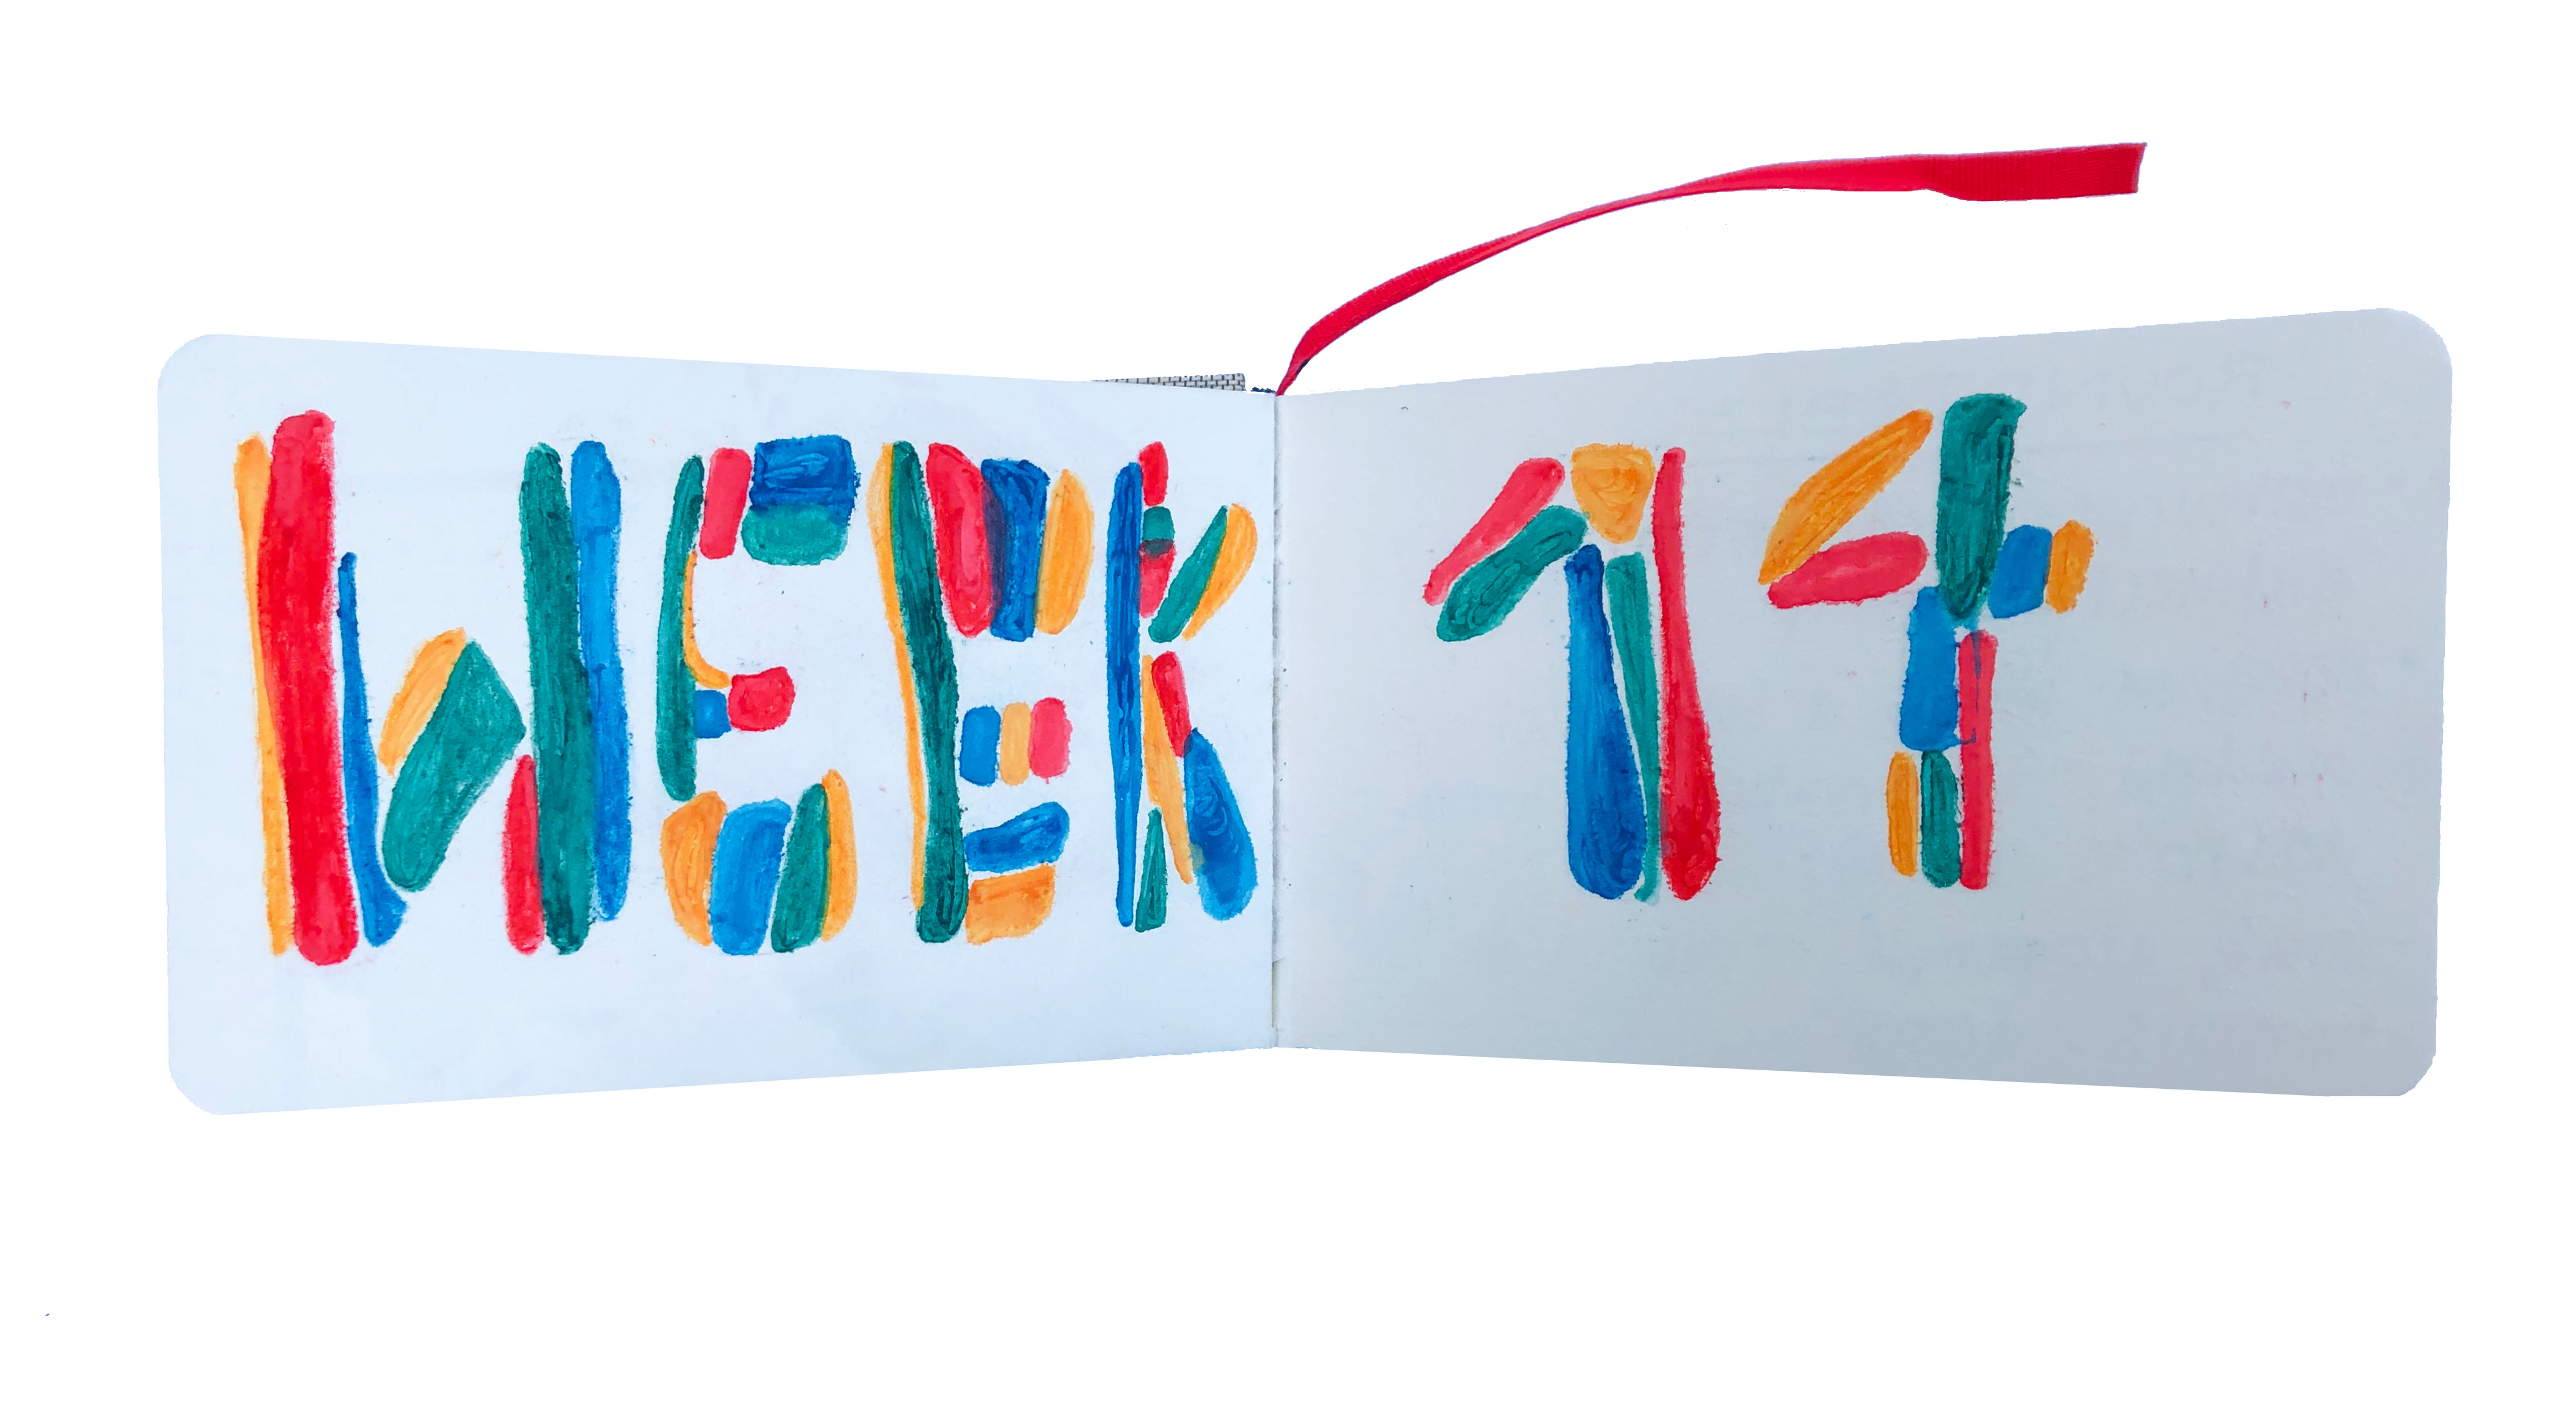 WEEK 14